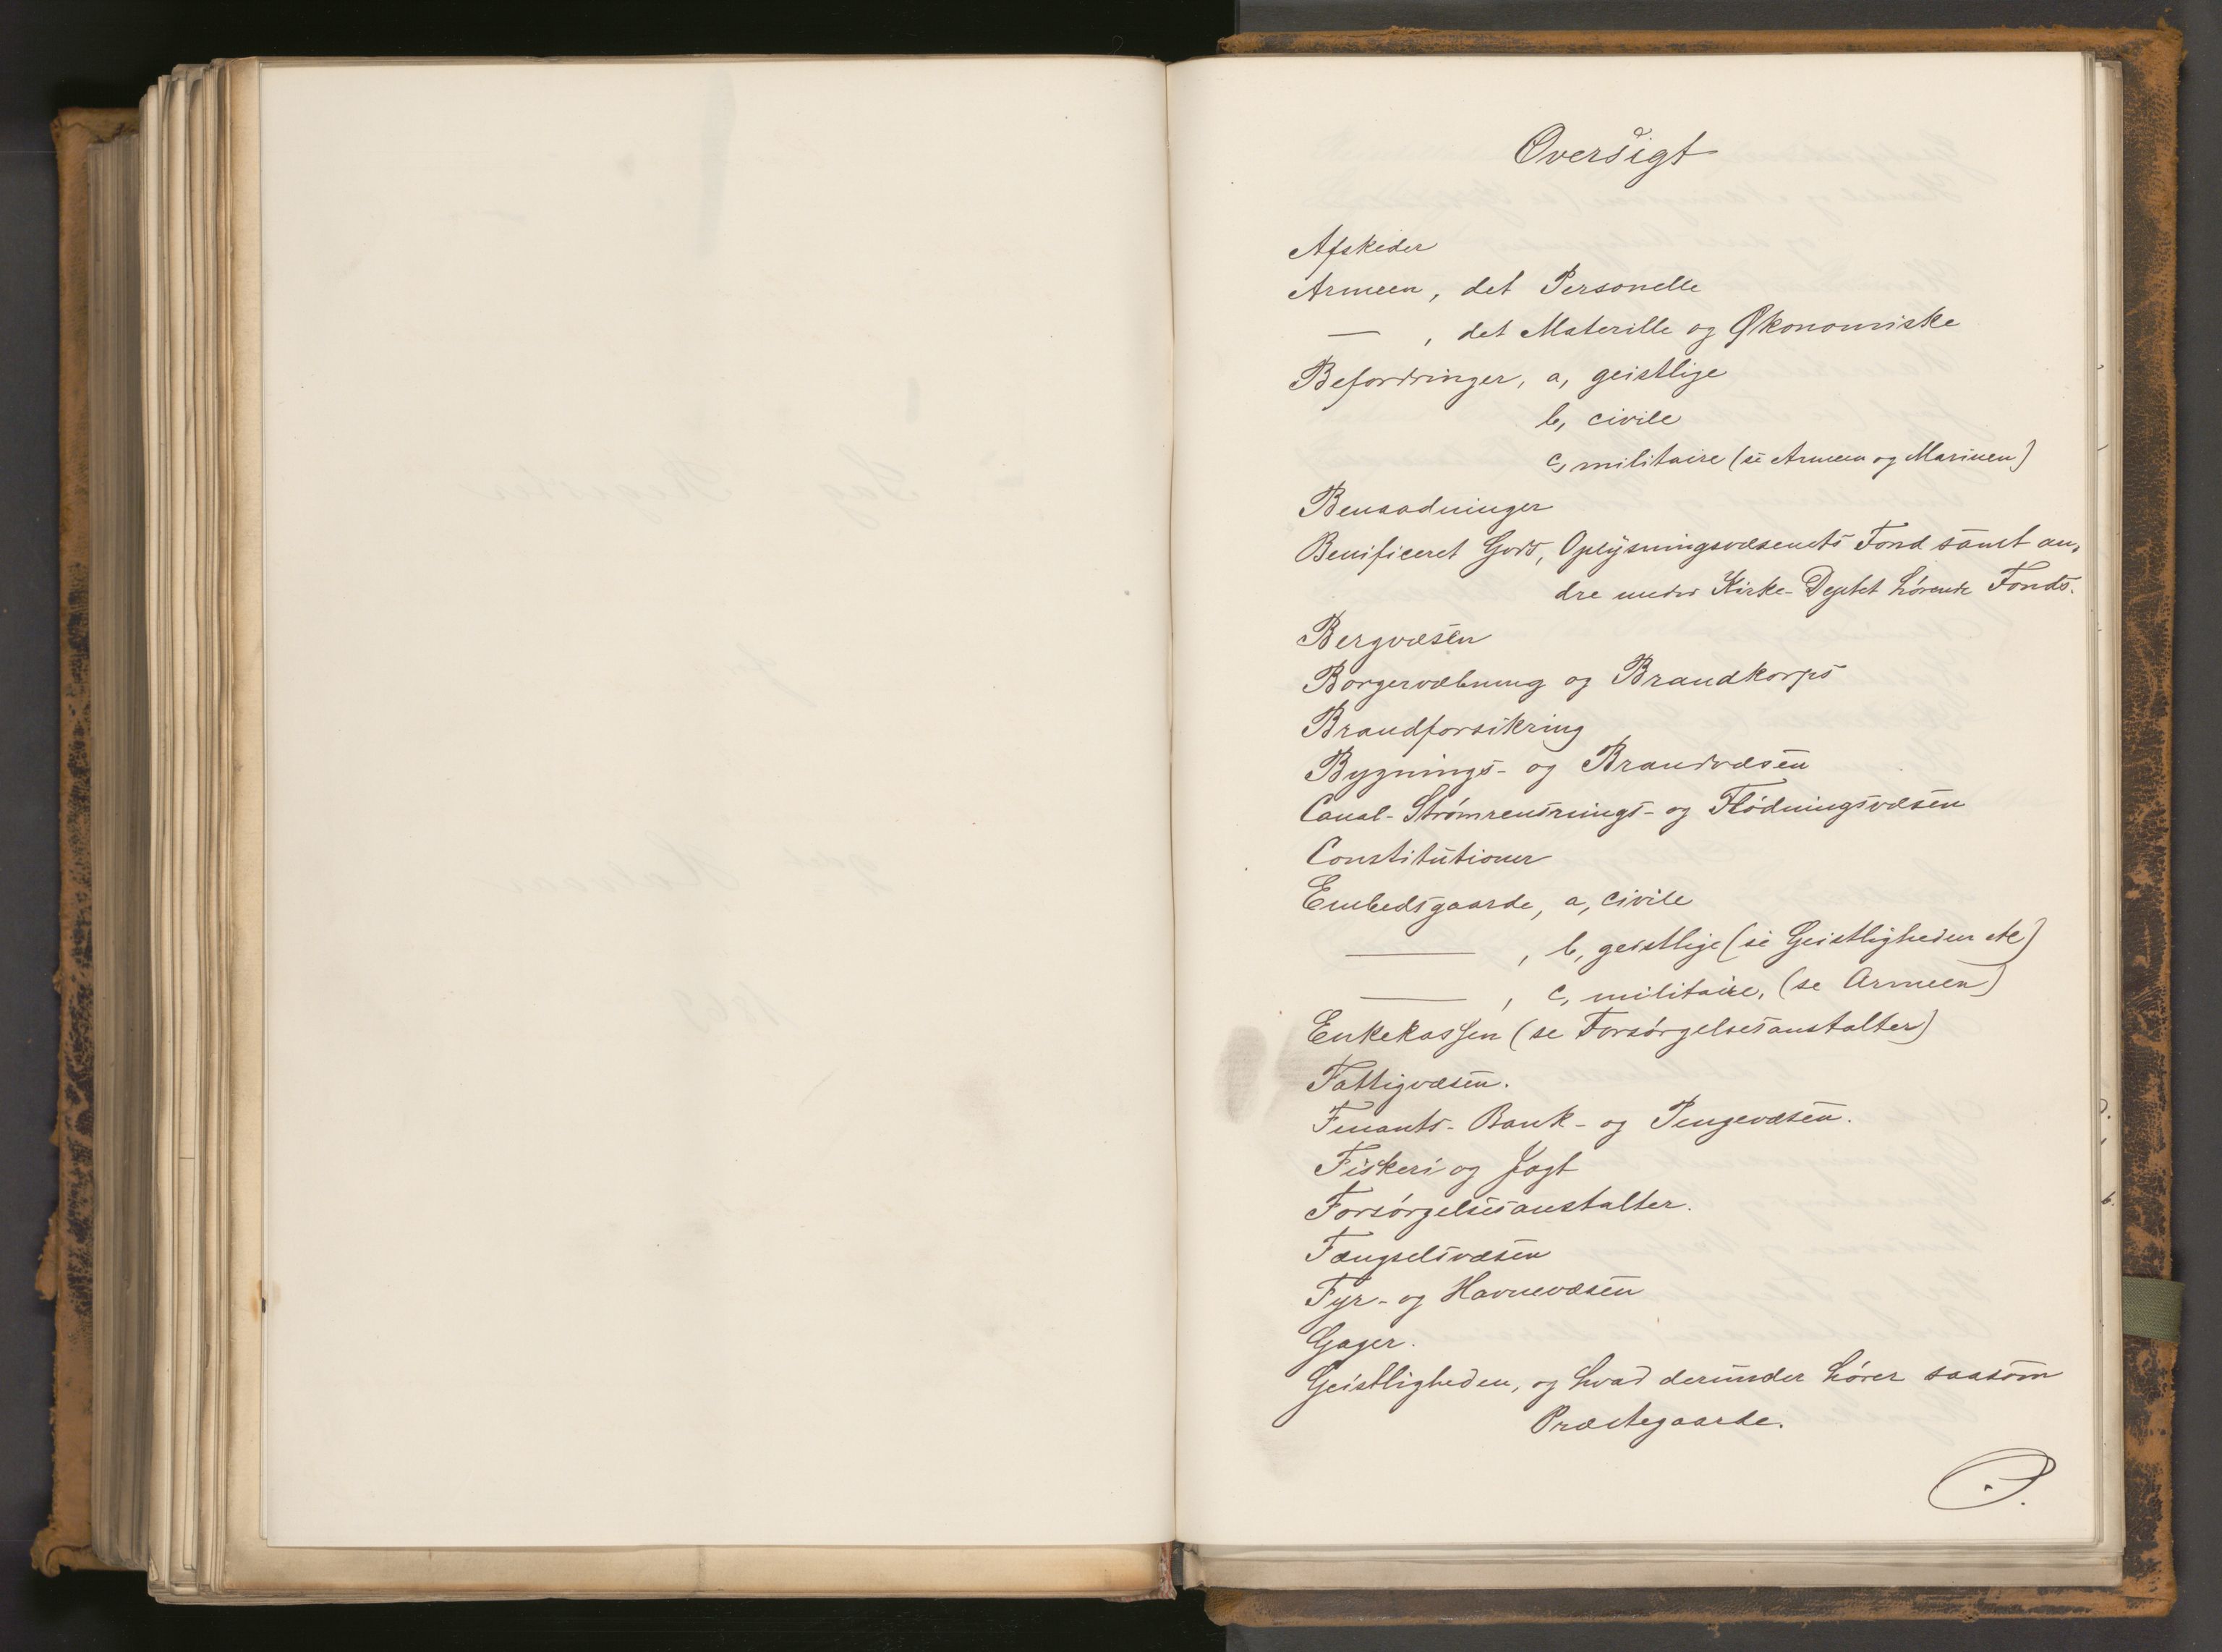 Oversigt
Afskeder
Armeen, det Personelle
— , det Materielle og Økonomiske
Befordringer, a, geistlige
b, civile
c, militaire (se Armeen og Marinen)
Benaadninger
Benificeret Gods, Oplysningsvæsenets Fond samt an,
dre under Kirke-Deptet hørende Fonds.
Bergvæsen
Borgervæbning og Brandkorps
Brandforsikring
Bygnings- og Brandvæsen
Canal- Strømrensnings- og Flødningsvæsen
Constitutioner
Embedsgaarde, a, civile
— , b, geistlige (se Geistligheden etc)
— , c, militaire, (se Armeen)
Enkekassen (se Forsørgelsesanstalter)
Fattigvæsen.
Finants- Bank- og Pengevæsen.
Fiskeri og Jagt
Forsørgelsesanstalter.
Fængselsvæsen
Fyr- og Havnevæsen
Gager.
Geistligheden, og hvad derunder hører saasom
Præstegaarde.